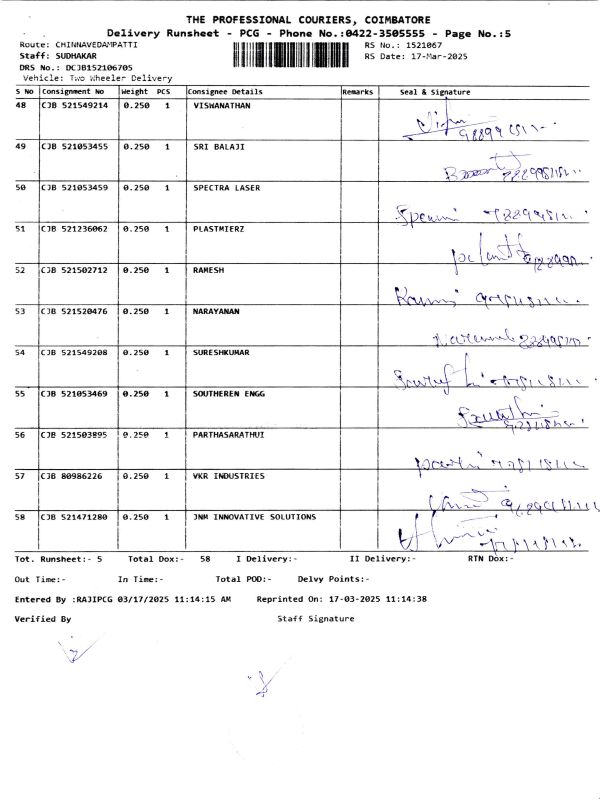 THE PROFESSIONAL COURIERS, COIMBATORE
Delivery Runsheet - PCG - Phone No.:0422-3505555 - Page No.:5
Route: CHINNAVEDAMPATTI RS No.: 1521067
Staff: SUDHAKAR RS Date: 17-Mar-2025
DRS No.: DCJB152106705
Vehicle: Two Wheeler Delivery
S No Consignment No Weight PCS Consignee Details Remarks Seal & Signature
48 CJB 521549214 0.250 1 VISWANATHAN
49 CJB 521053455 0.250 1 SRI BALAJI
50 CJB 521053459 0.250 1 SPECTRA LASER
51 CJB 521236062 0.250 1 PLASTMIERZ
52 CJB 521502712 0.250 1 RAMESH
53 CJB 521520476 0.250 1 NARAYANAN
54 CJB 521549208 0.250 1 SURESHKUMAR
55 CJB 521053469 0.250 1 SOUTHEREN ENGG
56 CJB 521503895 0.250 1 PARTHASARATHUI
57 CJB 80986226 0.250 1 VKR INDUSTRIES
58 CJB 521471280 0.250 1 JNM INNOVATIVE SOLUTIONS
Tot. Runsheet:- 5 Total Dox:- 58 I Delivery:- II Delivery:- RTN Dox:-
Out Time:- In Time:- Total POD:- Delvy Points:-
Entered By :RAJIPCG 03/17/2025 11:14:15 AM Reprinted On: 17-03-2025 11:14:38
Verified By Staff Signature